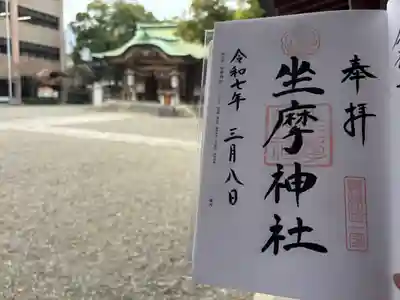 奉拝
坐摩神社
令和七年 三月八日